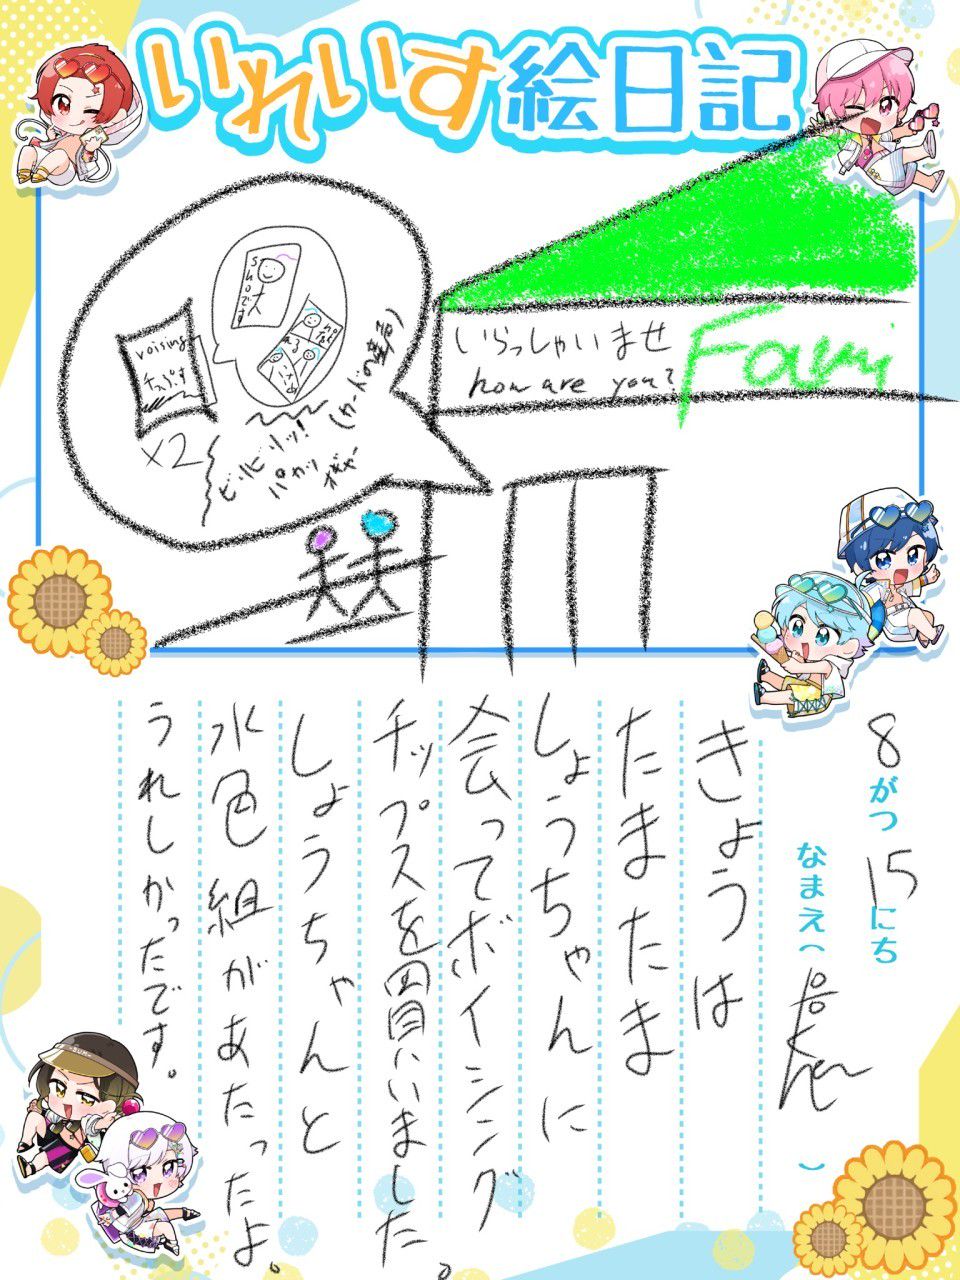 いれいす絵日記
shoです
voising
チップス
×2
ビリビリッ!
パカッ
ギャー
いらっしゃいませ
how are you?
Fami
8がつ15にち
なまえ( )
きょうは
たまたま
しょうちゃんに
会ってボイシング
チップスを買いいました。
しょうちゃんと
水色組があたったよ。
うれしかったです。